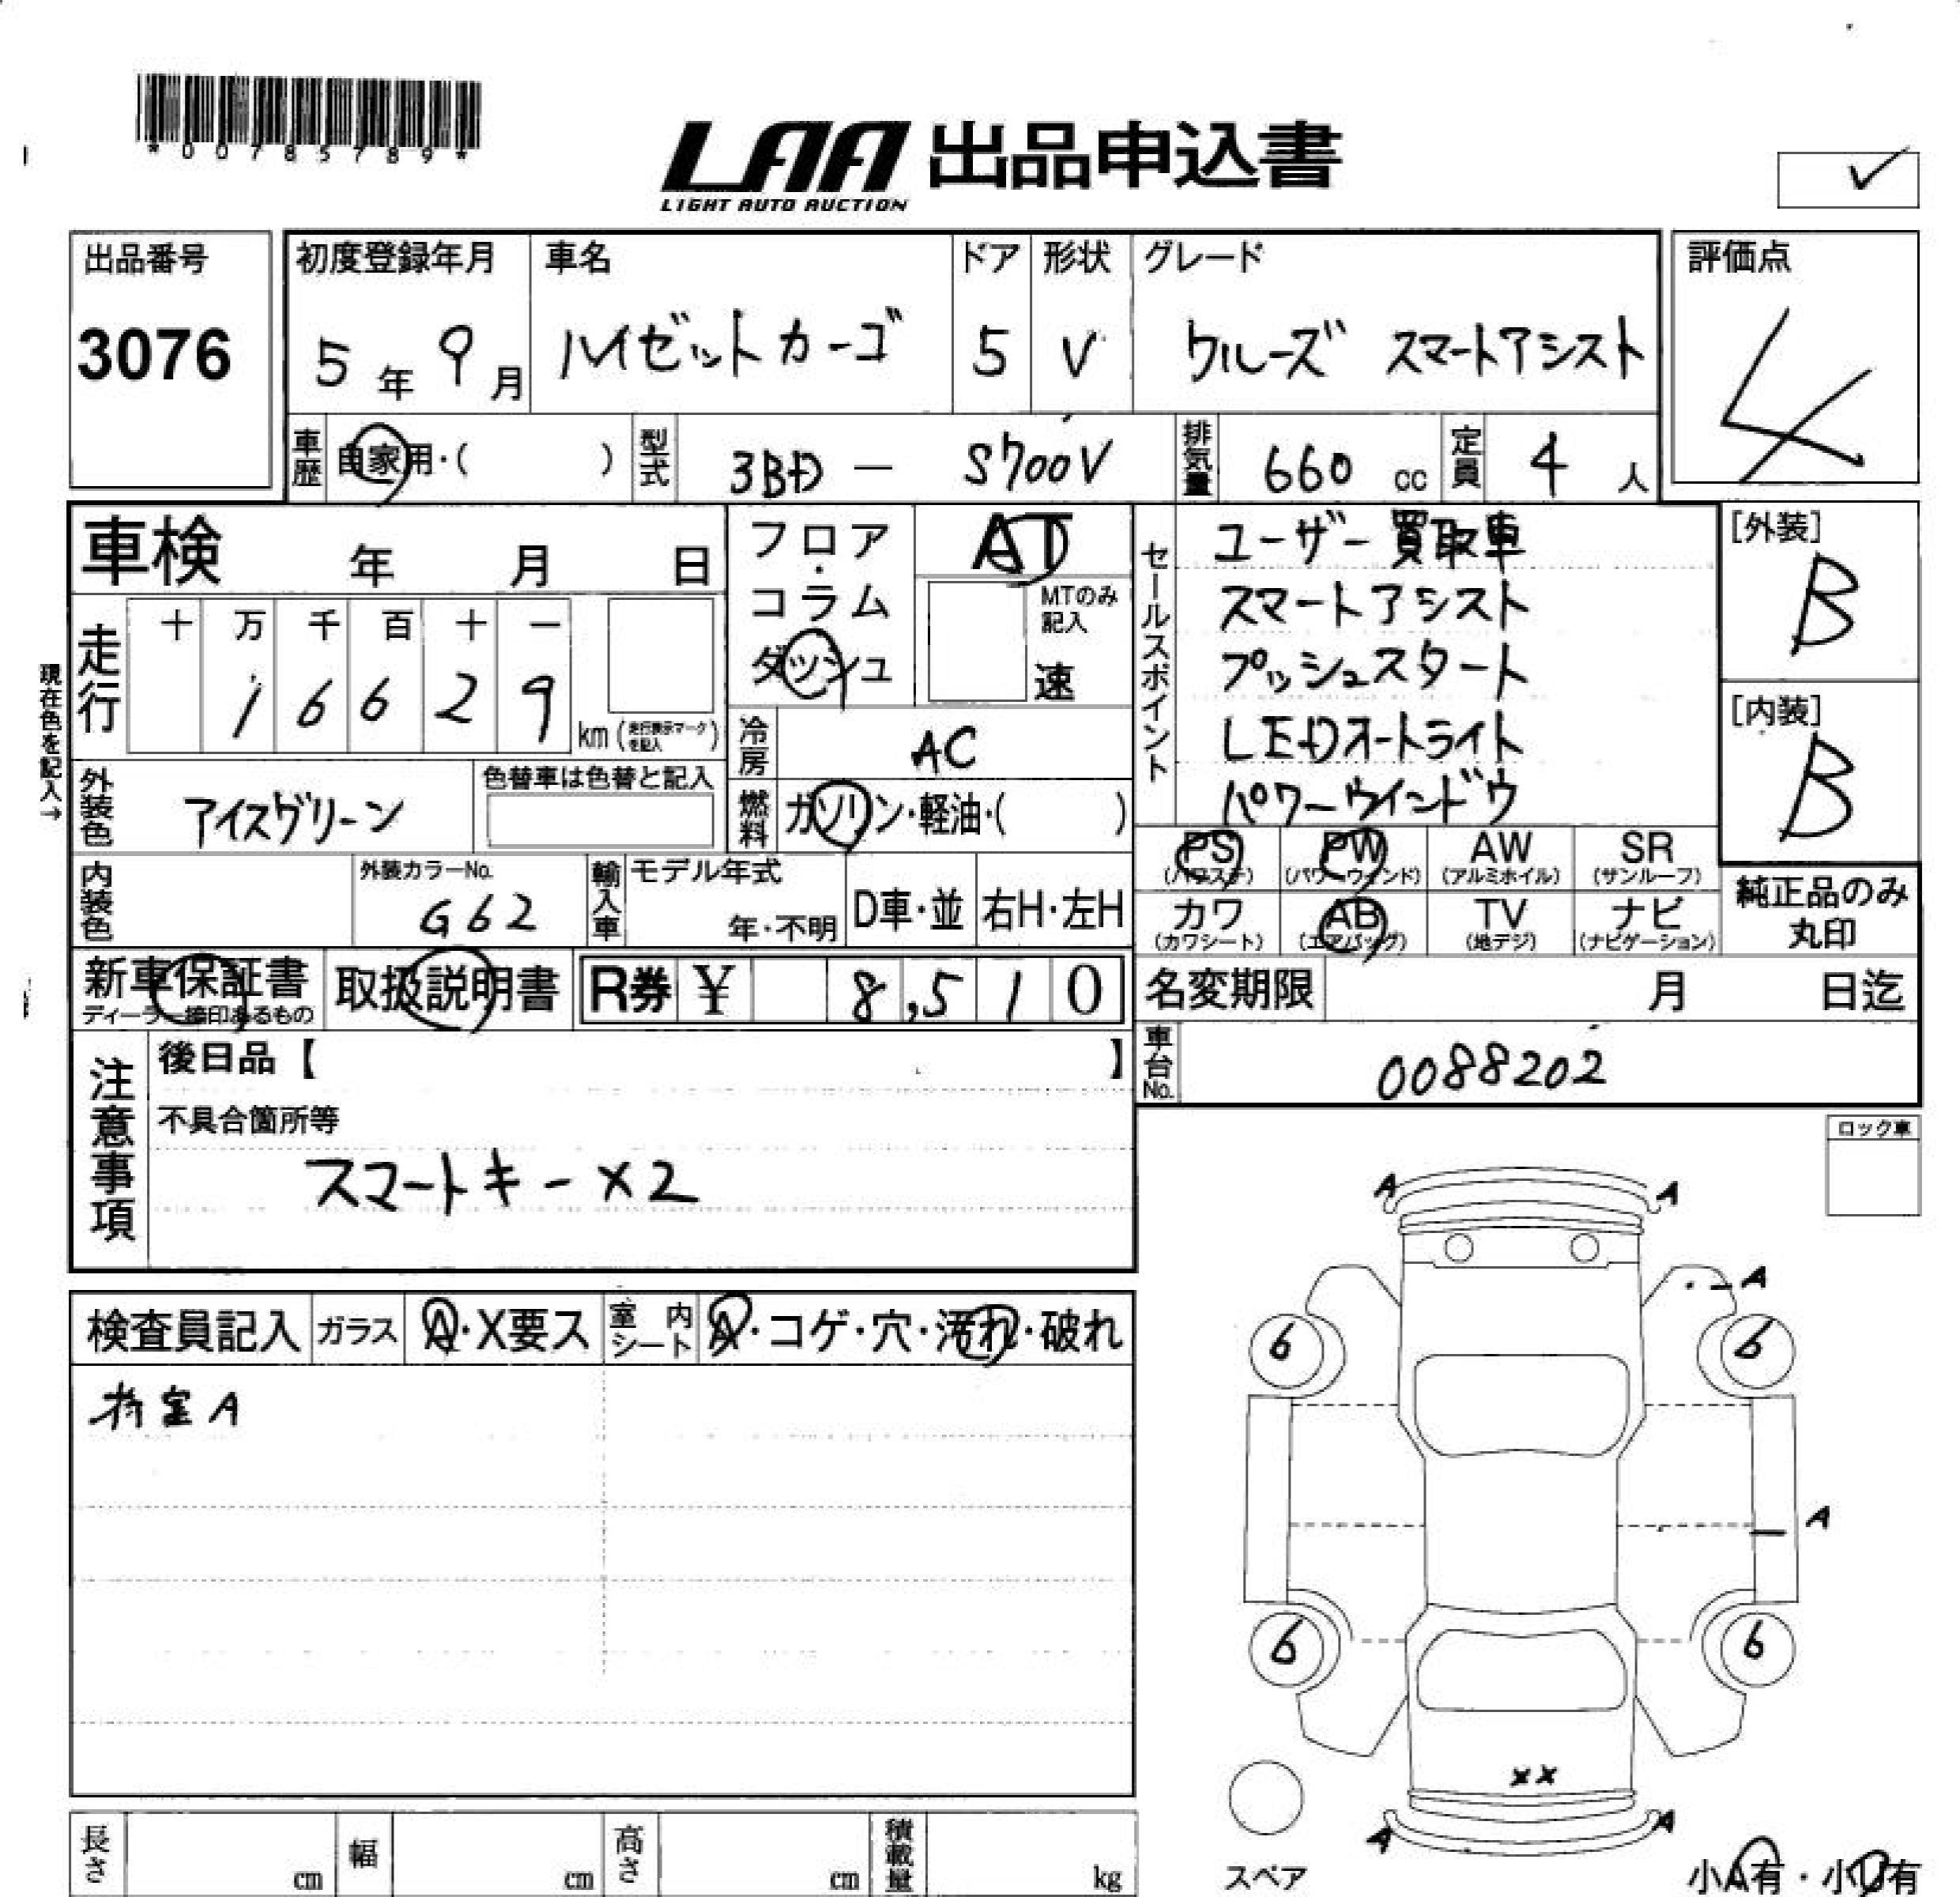 *00785789*
LAA 出品申込書
LIGHT AUTO AUCTION
✓
出品番号
3076
初度登録年月
5年9月
車名
ハイゼットカーゴ
ドア
5
形状
V
グレード
クルーズ スマートアシスト
評価点
4
車歴
自家用・( )
型式
3BD - S700V
排気量
660 cc
定員
4人
車検 年 月 日
フロア・コラム
ダッシュ
AT
MTのみ記入
速
現在色を記入→
走行
十 万 千 百 十 一
1 6 6 2 9
km(走行表示マークを記入)
冷房
AC
外装色
アイスグリーン
色替車は色替と記入
燃料
ガソリン・軽油・( )
セールスポイント
ユーザー買取車
スマートアシスト
プッシュスタート
LEDオートライト
パワーウインドウ
[外装]
B
[内装]
B
内装色
外装カラーNo.
G62
輸入車
モデル年式
年・不明
D車・並
右H・左H
PS (パワステ)
PW (パワーウィンド)
AW (アルミホイル)
SR (サンルーフ)
カワ (カワシート)
AB (エアバッグ)
TV (地デジ)
ナビ (ナビゲーション)
純正品のみ
丸印
新車保証書
ディーラー捺印あるもの
取扱説明書
R券 ¥ 8,510
名変期限 月 日迄
車台No.
0088202
注意事項
後日品【 】
不具合箇所等
スマートキー×2
ロック車
検査員記入
ガラス
A・X要ス
室内シート
A・コゲ・穴・汚れ・破れ
荷室A
A A
A
6 6
A
6 6
××
A A
スペア
小A有・小U有
長さ cm
幅 cm
高さ cm
積載量 kg